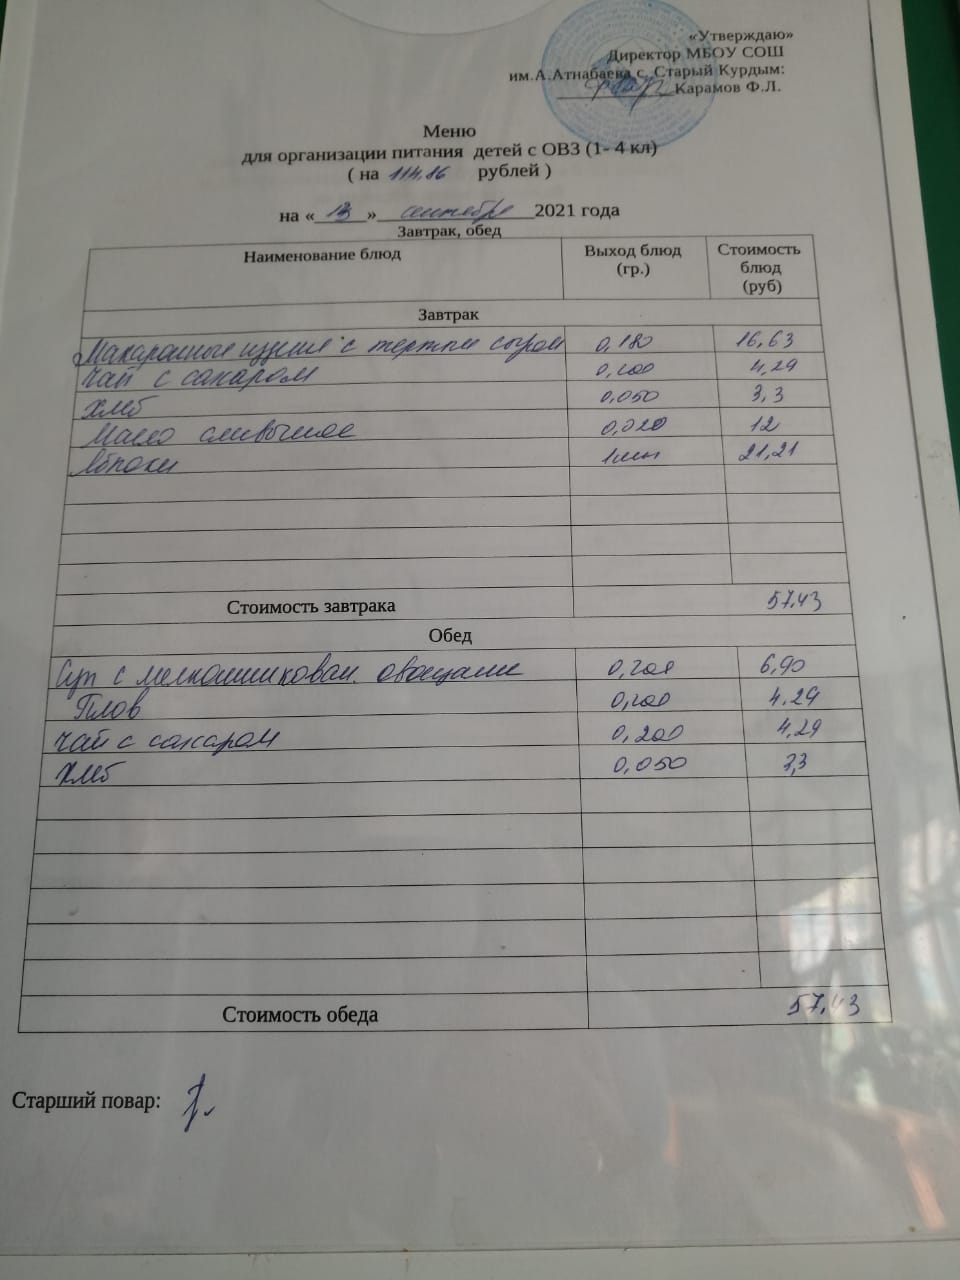 «Утверждаю»
Директор МБОУ СОШ
им.А.Атнабаева с. Старый Курдым:
Карамов Ф.Л.
Меню
для организации питания детей с ОВЗ (1- 4 кл)
( на 114,86 рублей )
на « 13 » сентября 2021 года
Завтрак, обед
Наименование блюд Выход блюд (гр.) Стоимость блюд (руб)
Завтрак
Макаронные изделия с тертым сыром 0,180 16,63
Чай с сахаром 0,200 4,29
Хлеб 0,050 3,3
Масло сливочное 0,020 12
Яблоки 1шт 21,21
Стоимость завтрака 57,43
Обед
Суп с мелкошинкован. овощами 0,200 6,90
Плов 0,200 4,29
Чай с сахаром 0,200 4,29
Хлеб 0,050 3,3
Стоимость обеда 57,43
Старший повар: